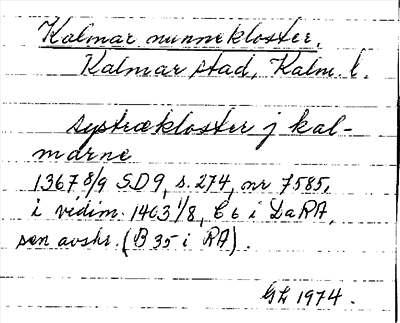 Kalmar nunnekloster.
Kalmar stad, Kalm. l.
systrækloster j kal-
marne
1367 8/9 SD9, s. 274, nr 7585,
i vidim. 1403 1/8, C 6 i DaRA,
sen avskr. (B 35 i RA).
GL 1974.